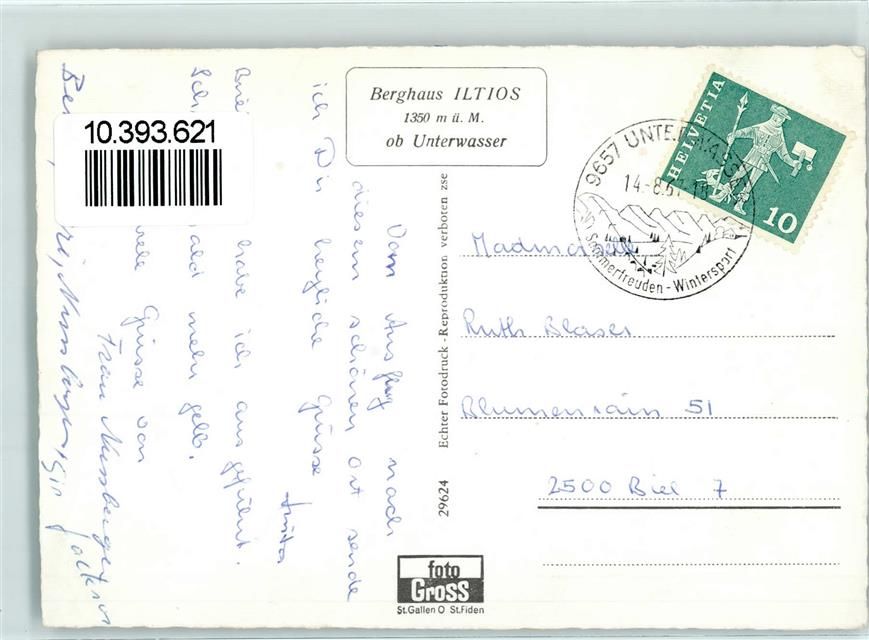 10.393.621
Berghaus ILTIOS
1350 m ü. M.
ob Unterwasser
HELVETIA
10
9657 UNTERWASSER
14.-8.67-18
Sommerfreuden - Wintersport
Vom Ausflug nach
diesem schönen Ort sende
ich Dir herzliche Grüsse
habe ich ausgeführt.
bald mehr gelb.
viele Grüsse von
Frau Nussberger
Echter Fotodruck - Reproduktion verboten zse
29624
Ruth Blaser
Blumenrain 51
2500 Biel 7
foto
Gross
St.Gallen O St.Fiden